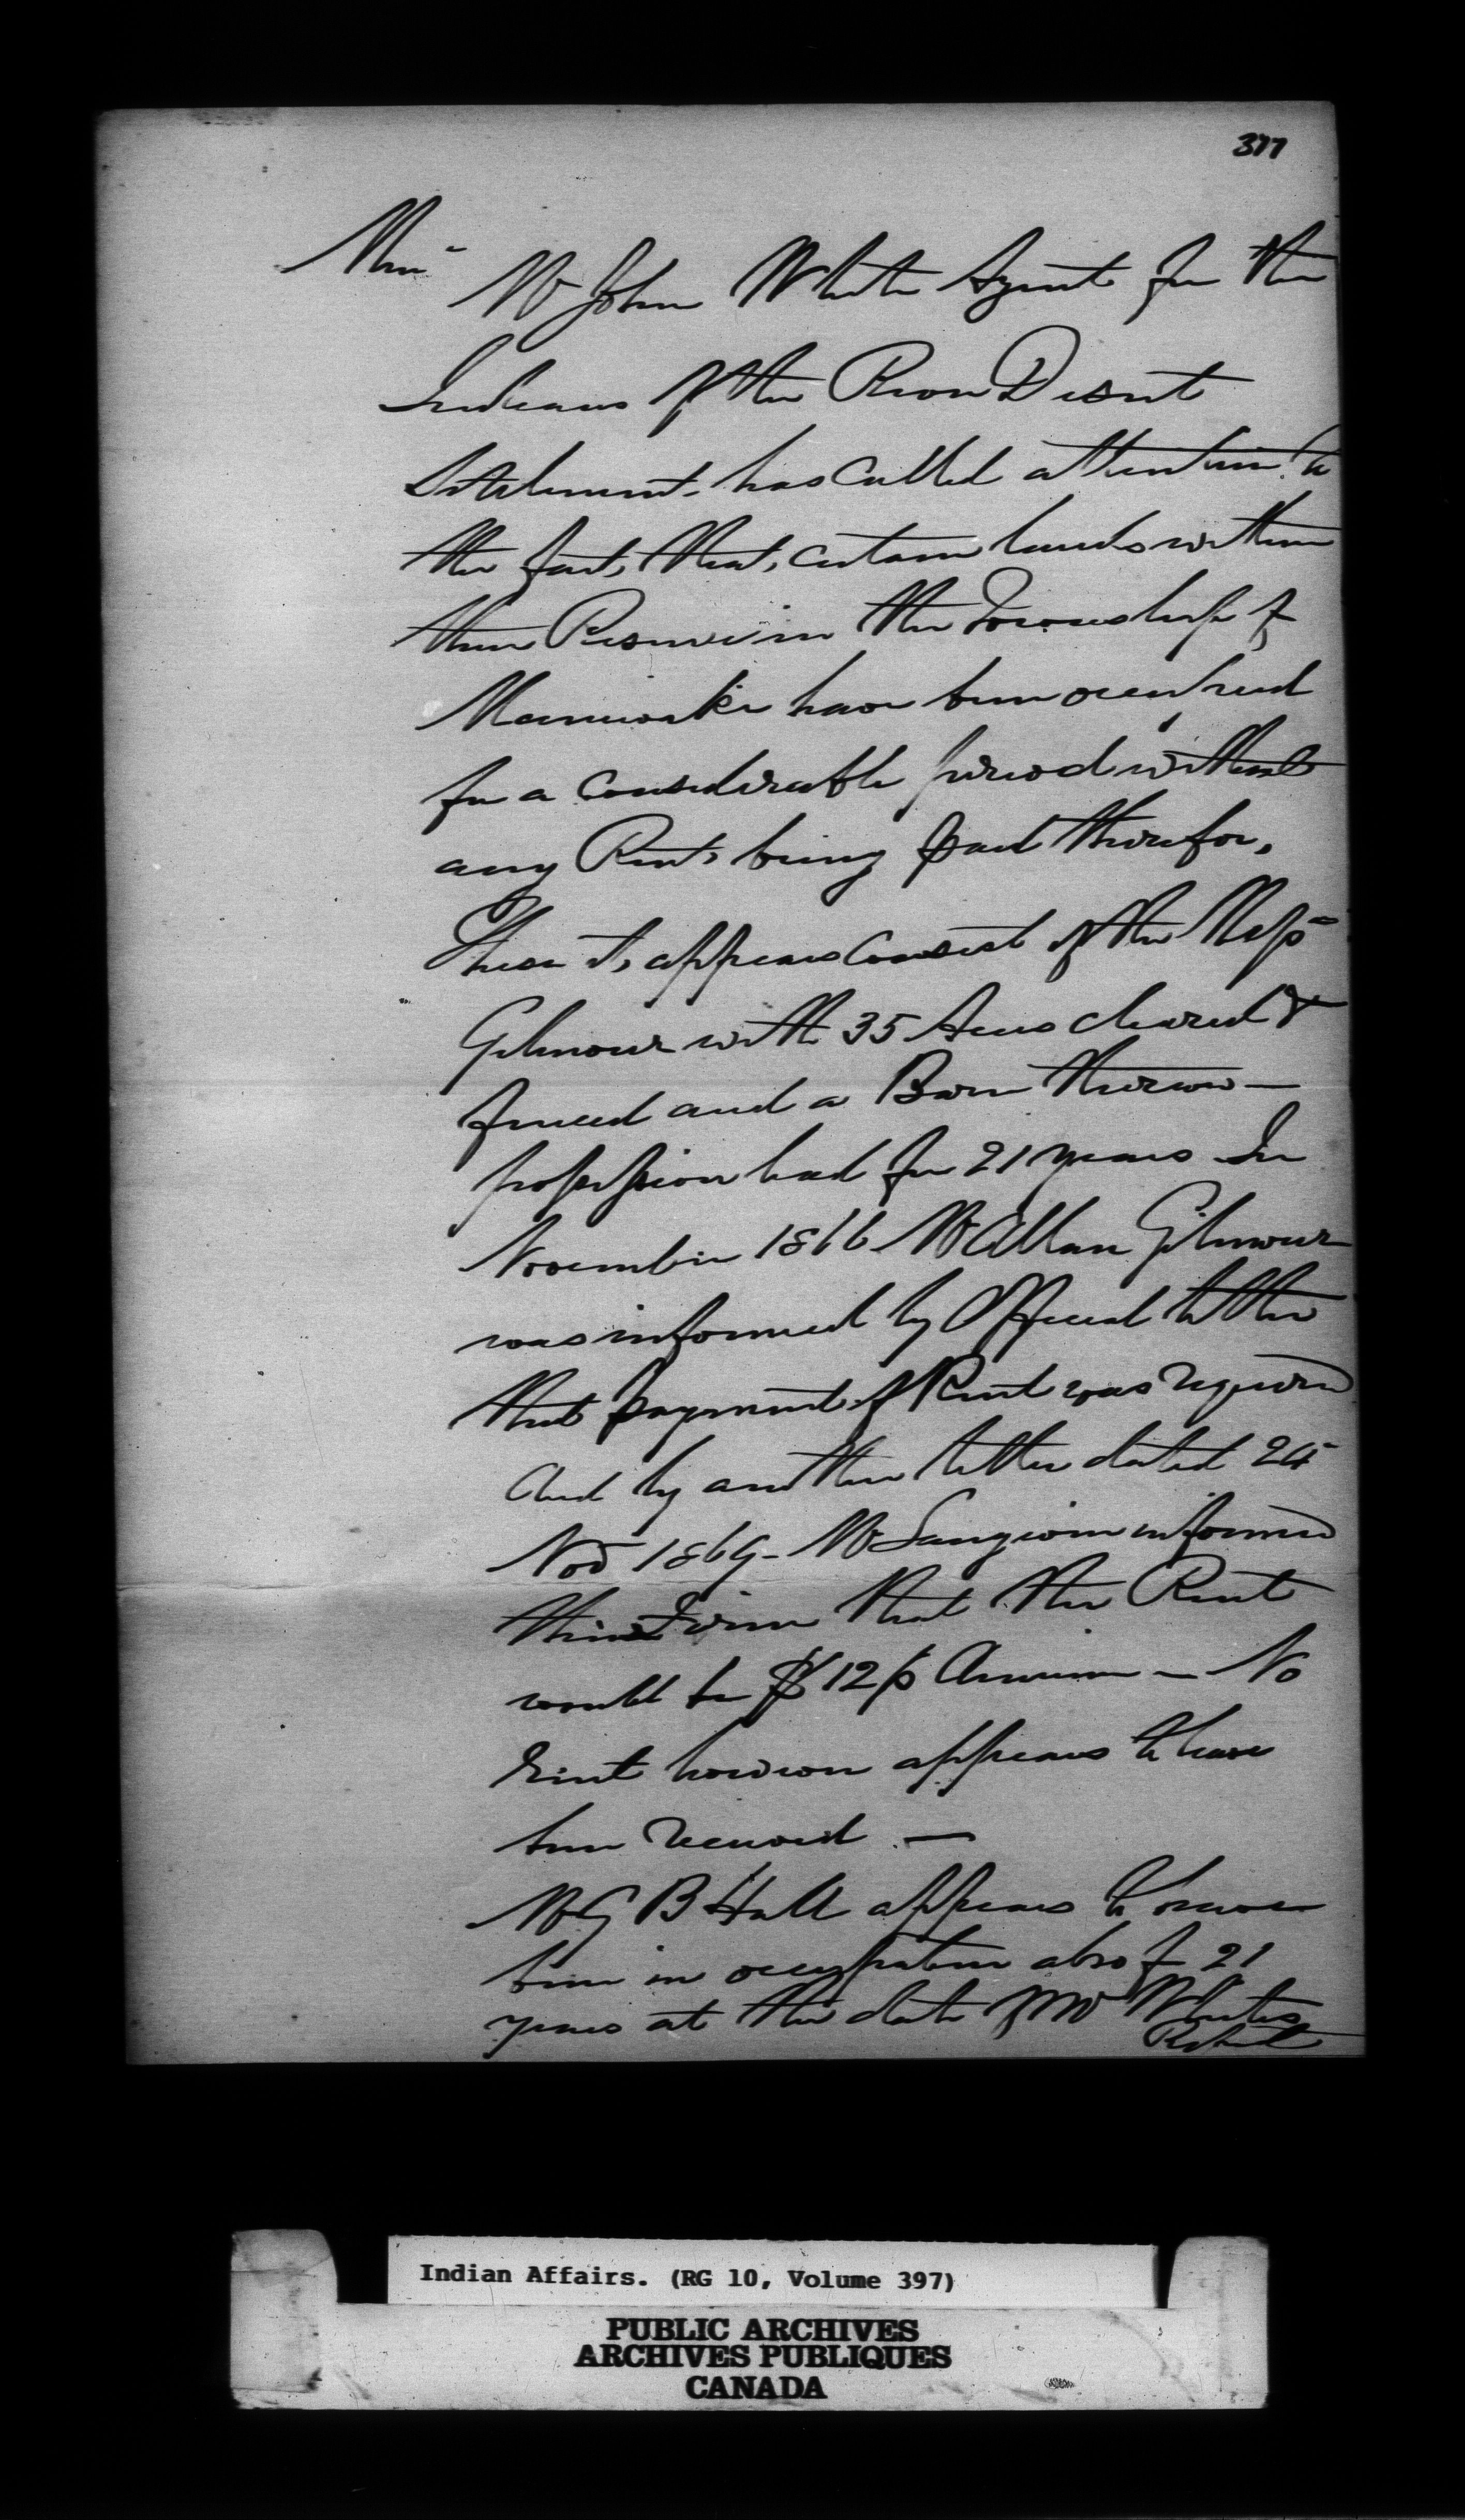 377
Mem
Mr John White Agent for the
Indians of the River Desert
Settlement has called attention to
the fact, that, certain lands within
their Reserve in the Township of
Maniwaki have been occupied
for a considerable period without
any Rent being paid therefor,
These it, appears consist of the Messrs
Gilmour with 35 Acres cleared &
fenced and a Barn thereon —
possession had for 21 years In
November 1866 Mr Allan Gilmour
was informed by Official letter
that payment of Rent was required
And by another letter dated 24
Nov 1869 - Mr Langevin informed
their Firm that the Rent
would be $12 p Annum — No
Rent however appears to have
been received —
Mr G B Hall appears to have
been in occupation also for 21
years at the date of Mr White's
Report
Indian Affairs. (RG 10, Volume 397)
PUBLIC ARCHIVES
ARCHIVES PUBLIQUES
CANADA